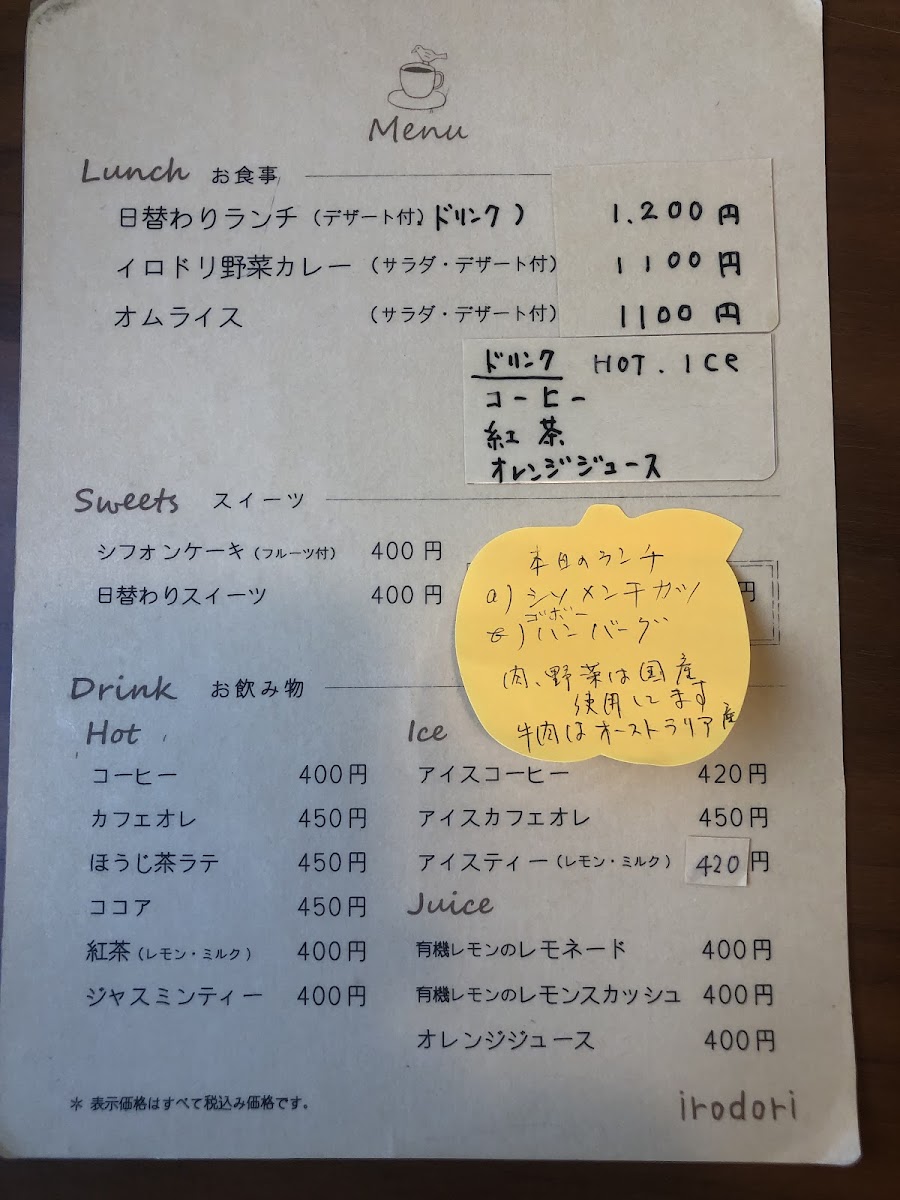 Menu
Lunch お食事
日替わりランチ（デザート付、ドリンク） 1.200円
イロドリ野菜カレー（サラダ・デザート付） 1100円
オムライス（サラダ・デザート付） 1100円
ドリンク HOT. Ice
コーヒー
紅茶
オレンジジュース
Sweets スイーツ
シフォンケーキ（フルーツ付） 400円
日替わりスイーツ 400円
円
本日のランチ
a) シソメンチカツ
ゴボー
b) ハンバーグ
肉、野菜は国産
使用してます
牛肉はオーストラリア産
Drink お飲み物
Hot
コーヒー 400円
カフェオレ 450円
ほうじ茶ラテ 450円
ココア 450円
紅茶（レモン・ミルク） 400円
ジャスミンティー 400円
Ice
アイスコーヒー 420円
アイスカフェオレ 450円
アイスティー（レモン・ミルク） 420円
Juice
有機レモンのレモネード 400円
有機レモンのレモンスカッシュ 400円
オレンジジュース 400円
＊ 表示価格はすべて税込み価格です。
irodori